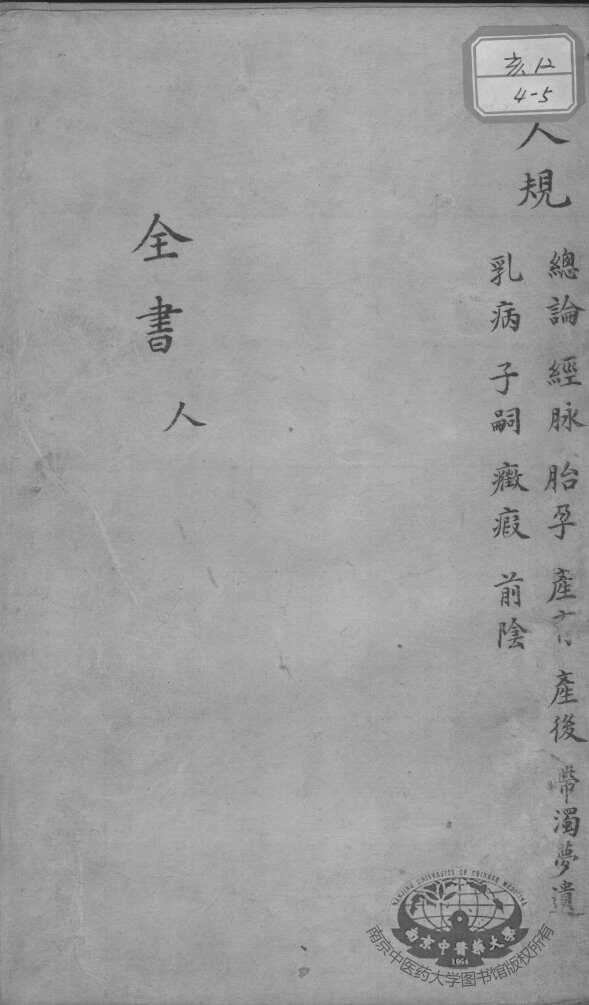 亥12
4-5
人規
總論 經脉 胎孕 產育 產後 帶濁夢遺
乳病 子嗣 癥瘕 前陰
全書
人
NANJING UNIVERSITY OF CHINESE MEDICINE
南京中醫藥大學
1954
南京中医药大学图书馆版权所有